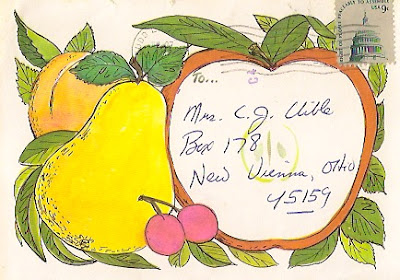 PEOPLE PEACEABLY TO ASSEMBLE
USA 9c
To...
Mrs. C. J. Uible
Box 178
New Vienna, Ohio
45159